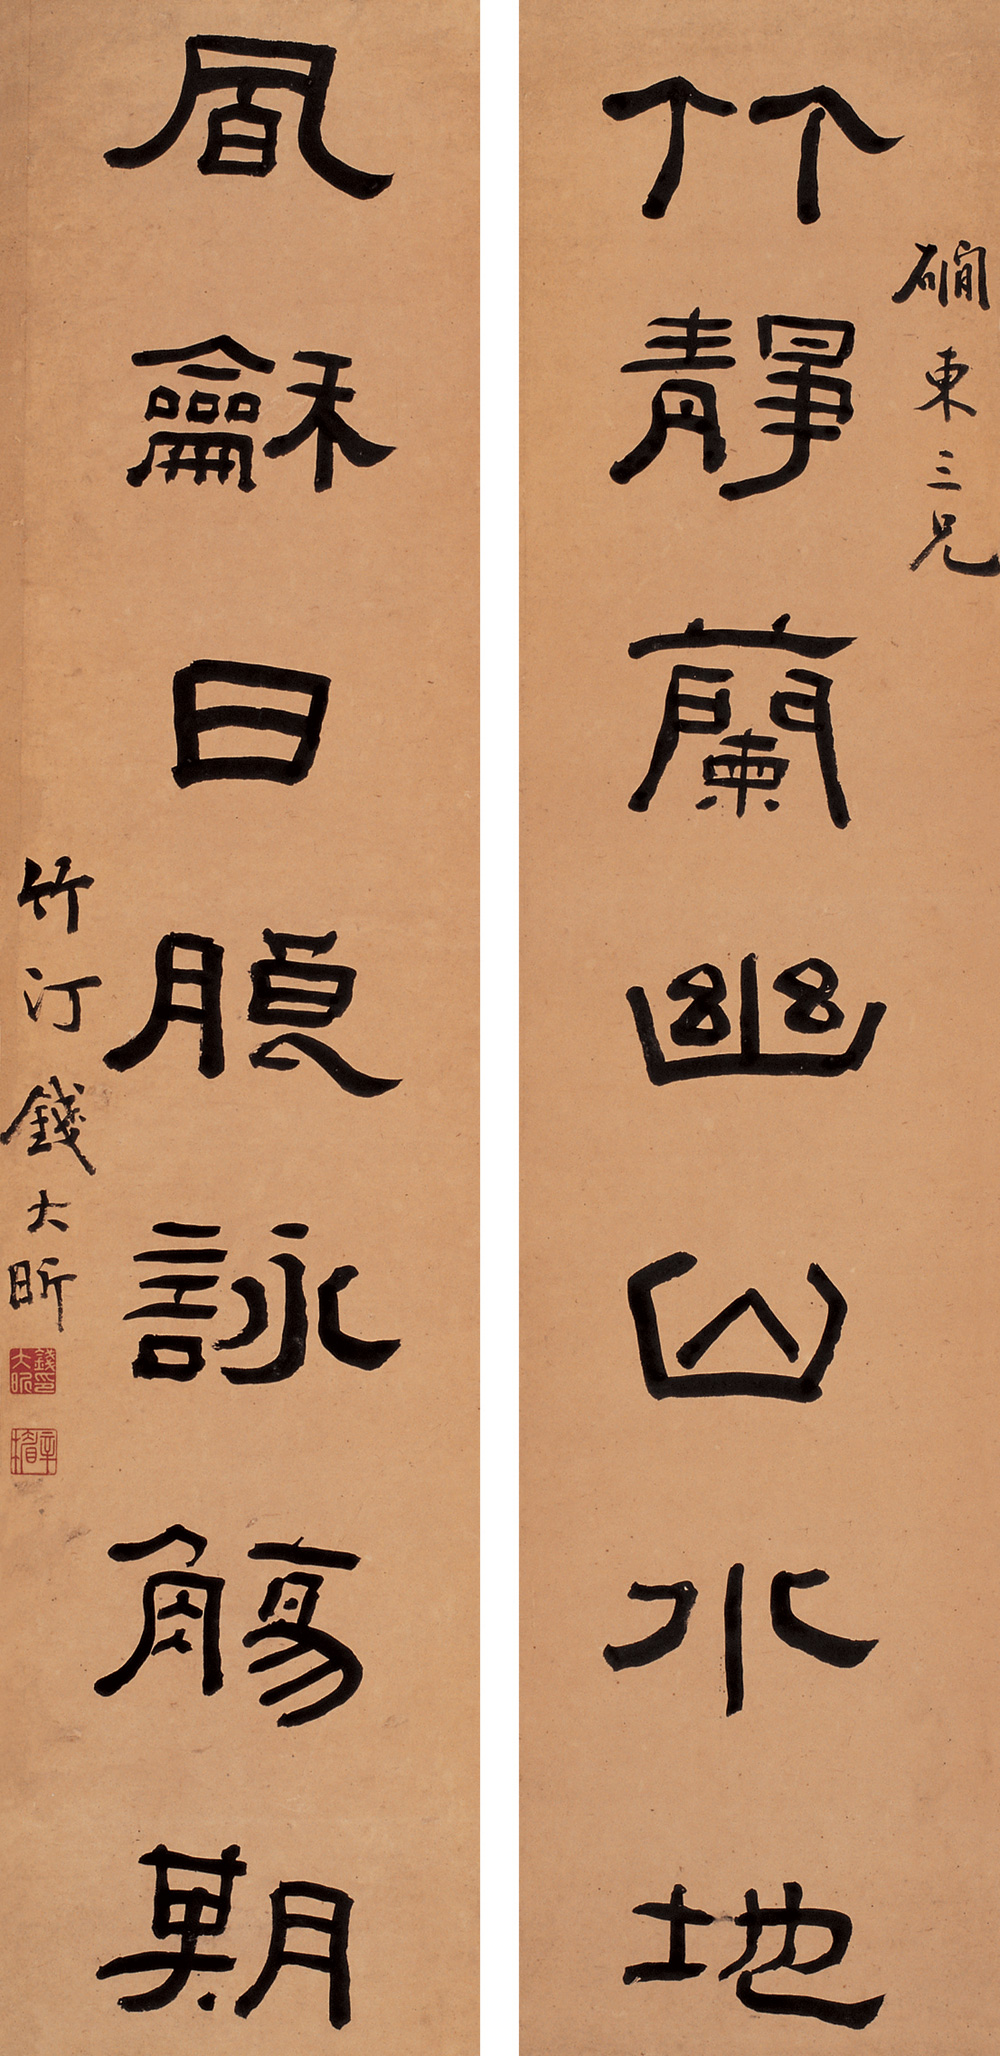 磵東三兄
竹靜蘭幽山水地
風龢日朖詠觴期
竹汀錢大昕
錢印大昕
辛楣